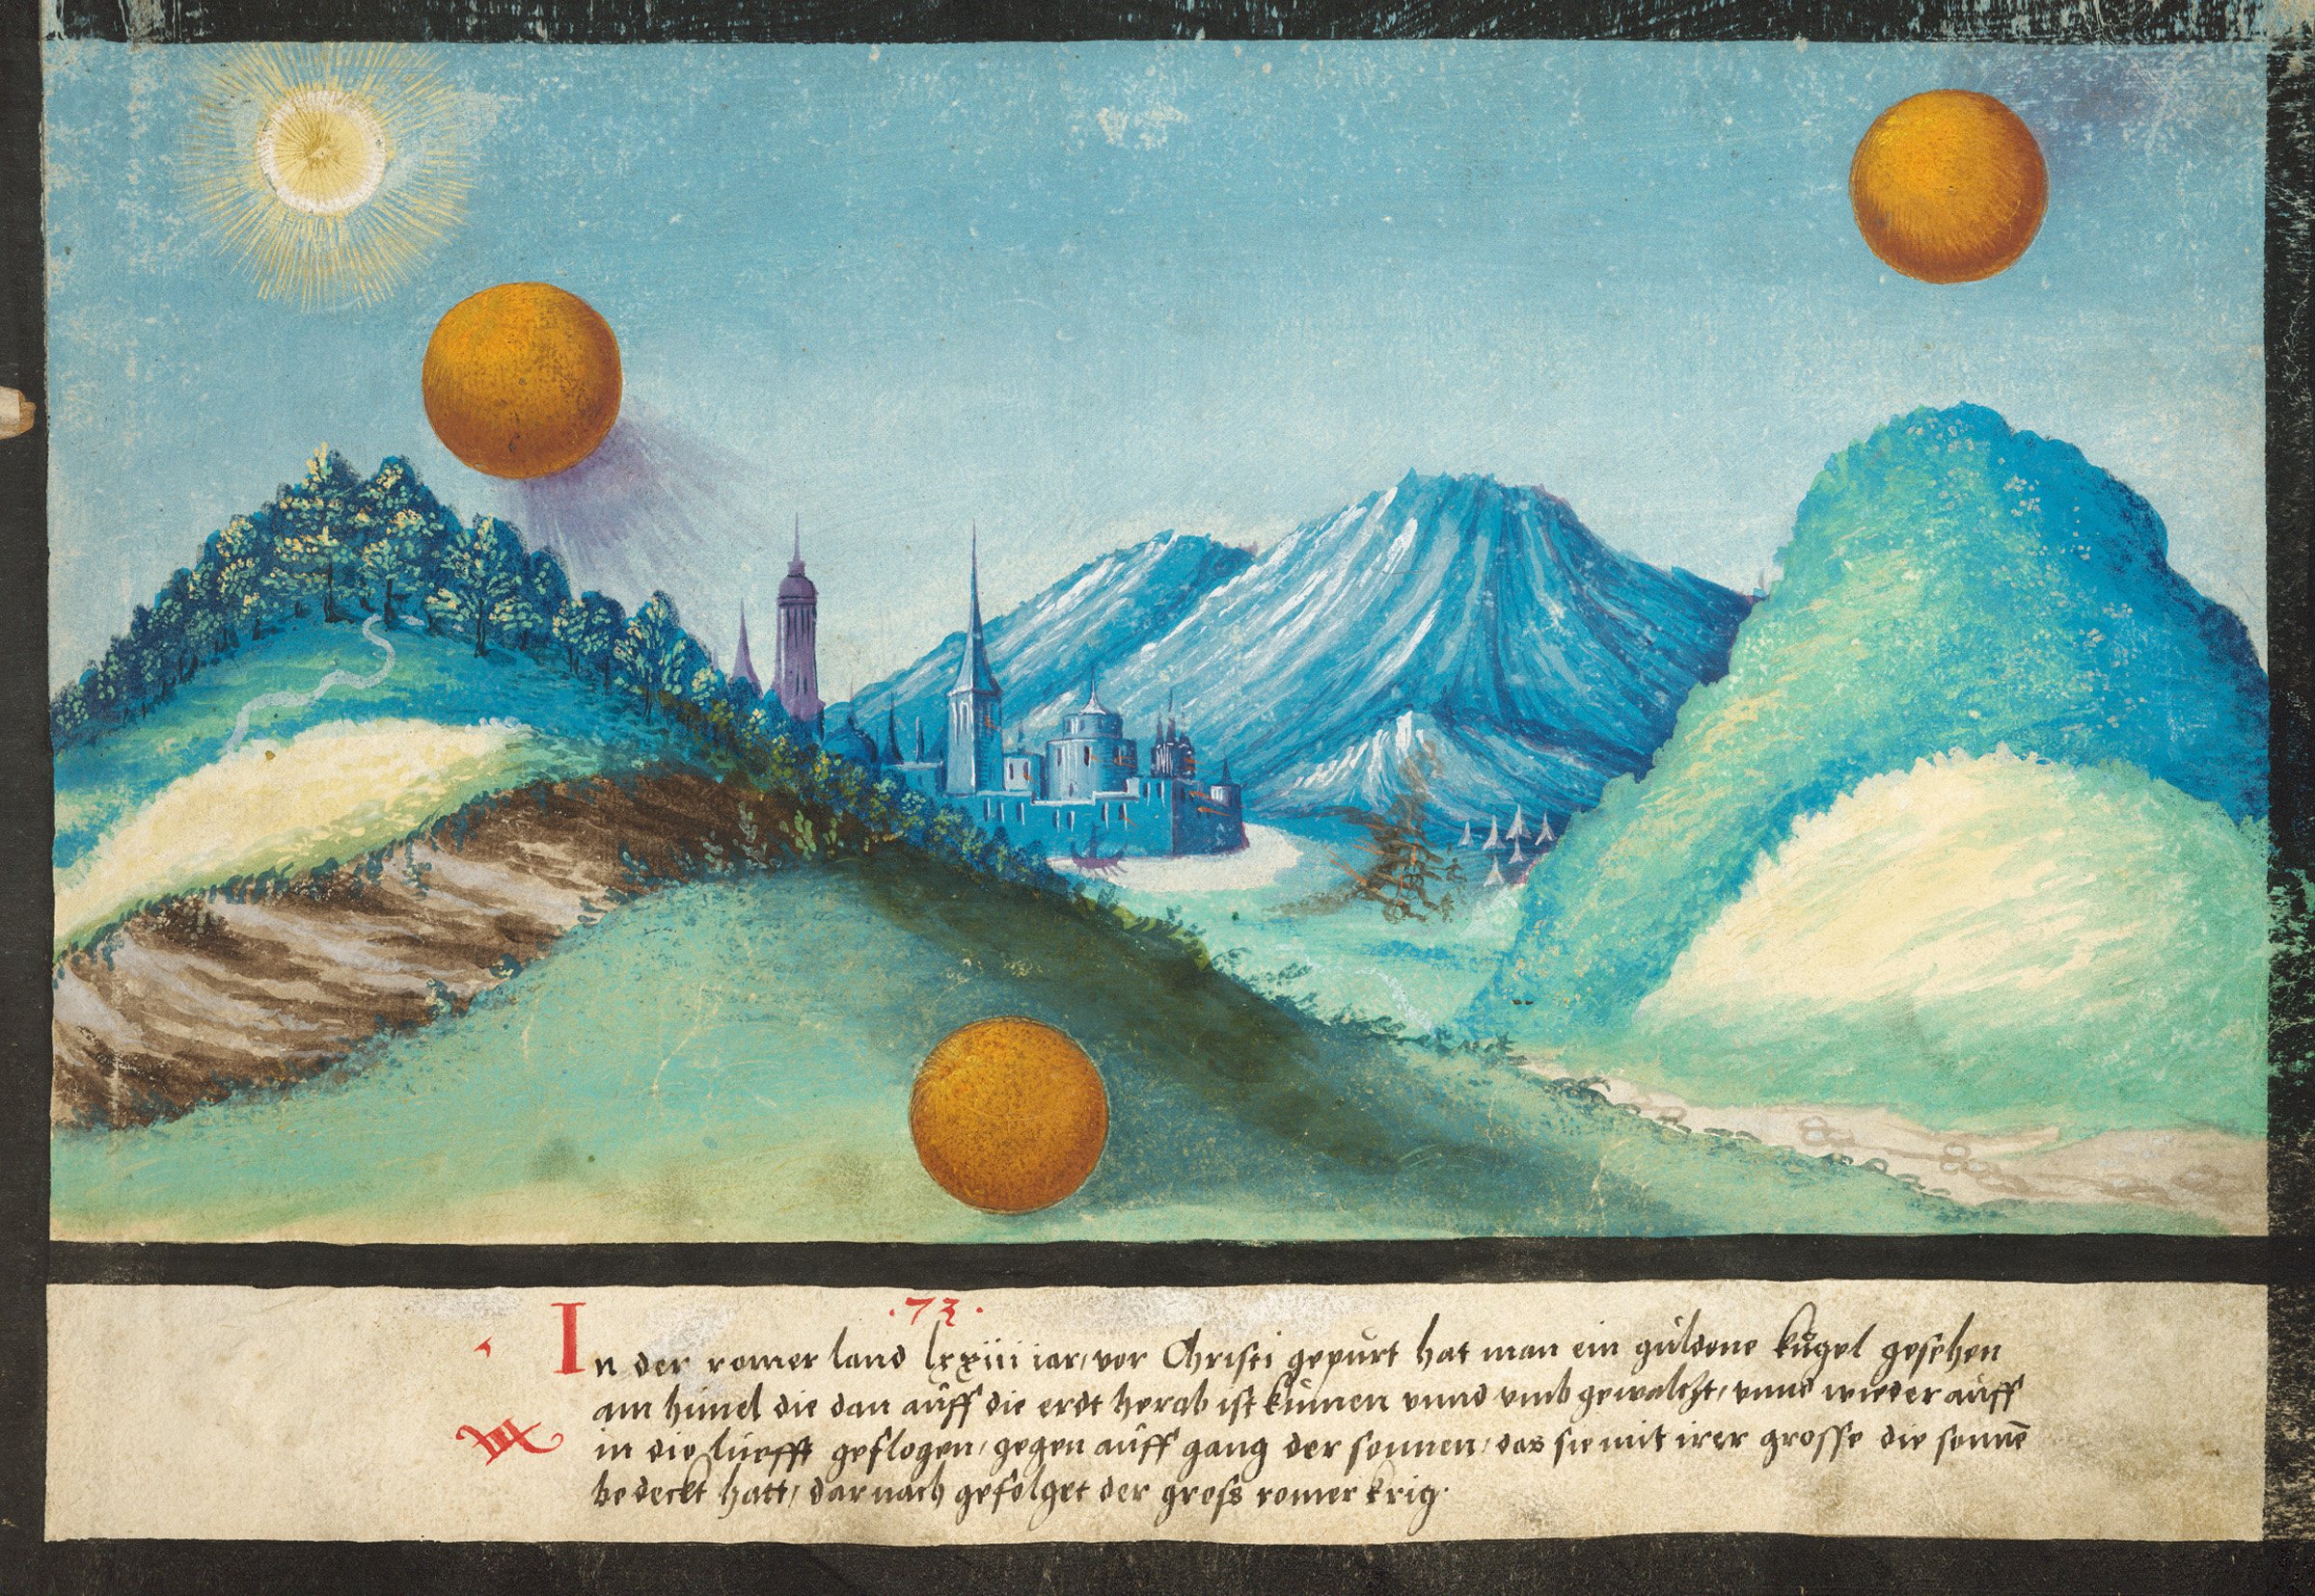 .73.
In der romer land lxxiii iar, vor Christi gepurt hat man ein guldene kugel gesehen
am himel die dan auff die erdt herab ist kumen vnnd vmb gewalcht, vnnd wieder auff
in die luefft geflogen, gegen auff gang der sonnen, das sie mit irer grosse die sonnē
bedeckt hatt, darnach gefolget der gross romer krig.